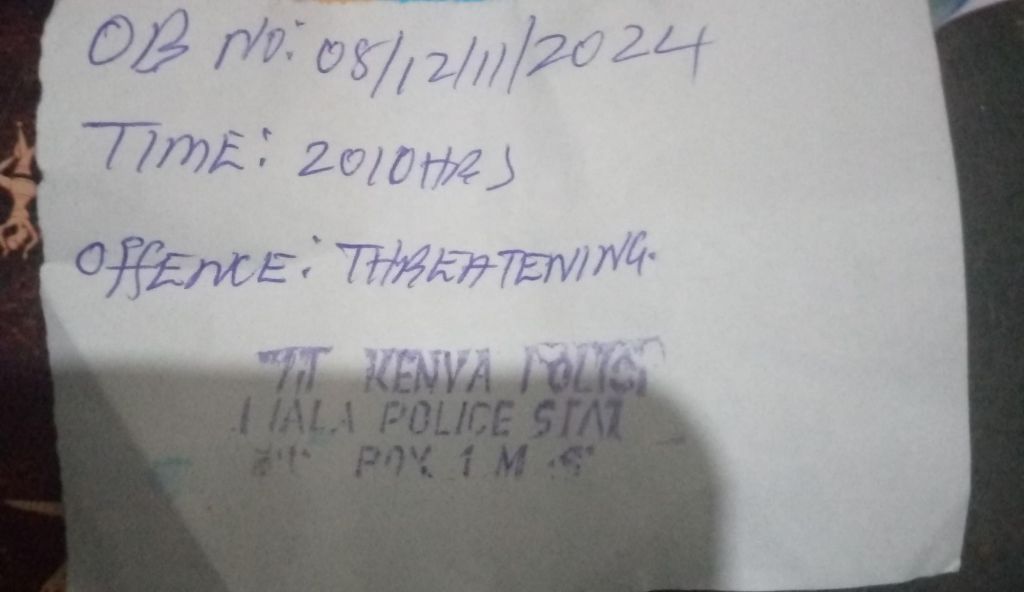 OB NO: 08/12/11/2024
TIME: 2010HRS
OFFENCE: THREATENING.
KENYA POLICE
POLICE STAT
BOX 1 M